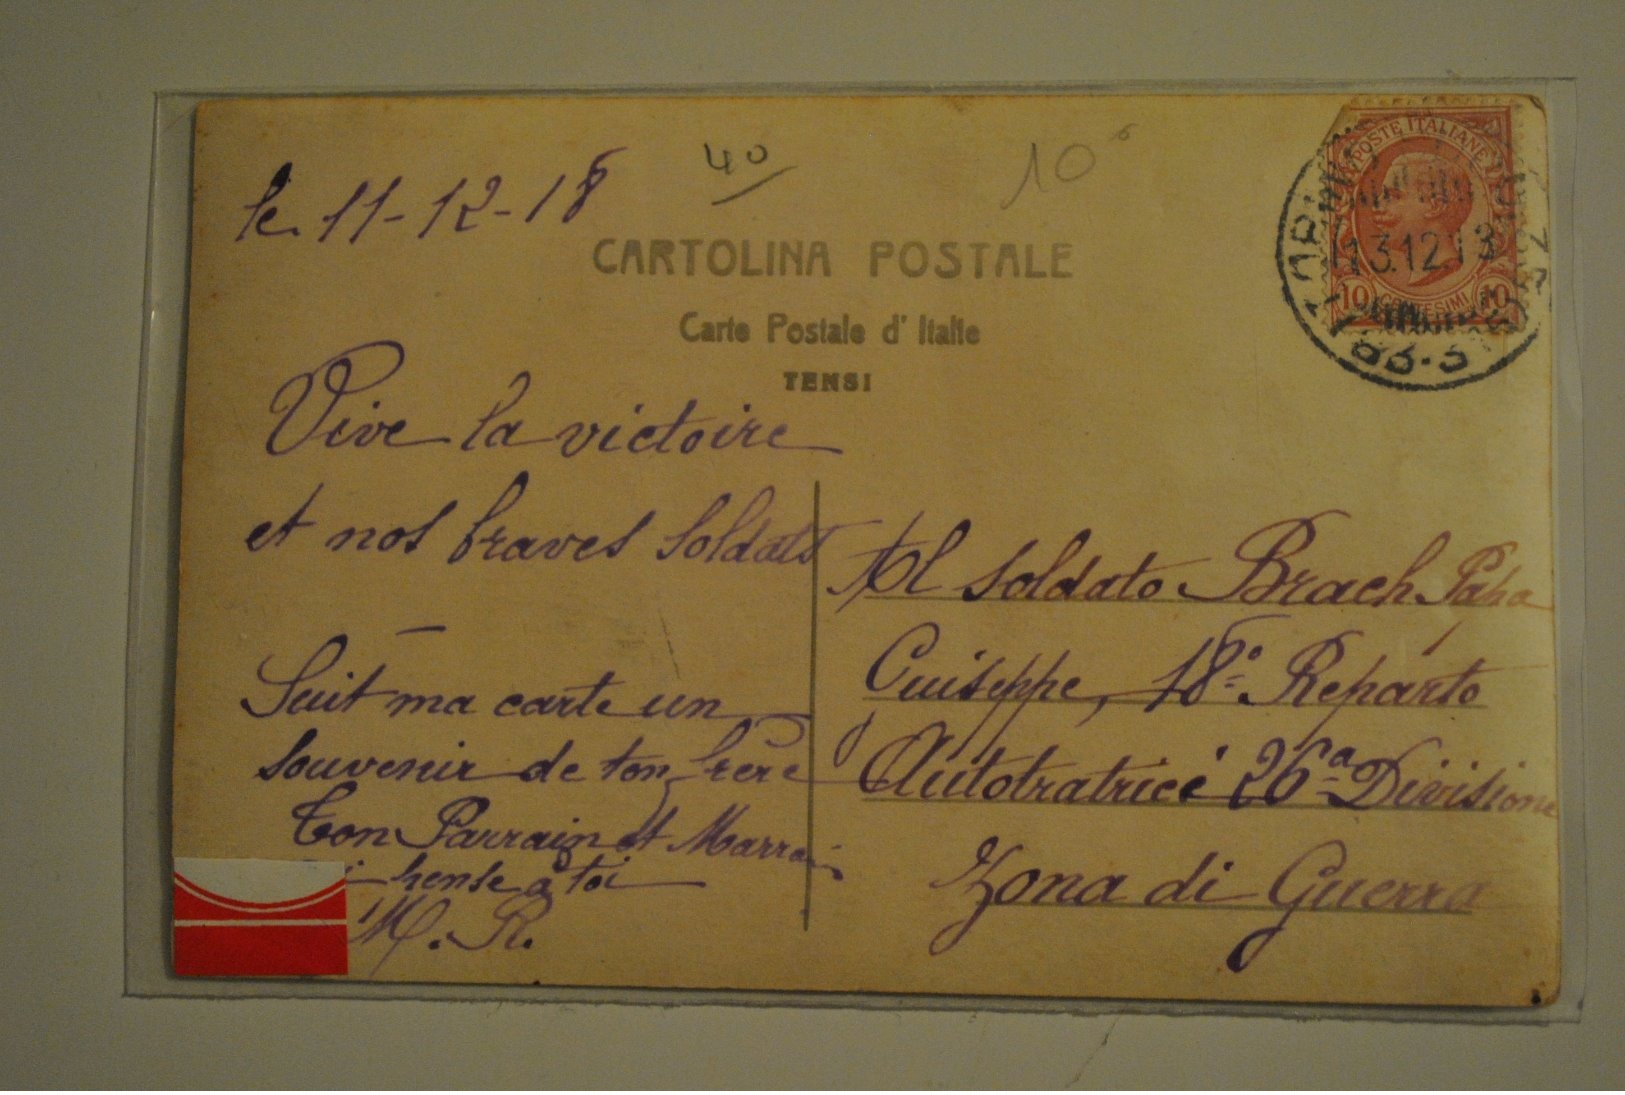 le 11-12-18
40
10
CARTOLINA POSTALE
Carte Postale d' Italie
TENSI
POSTE ITALIANE
13.12.18
10 CENTESIMI 10
TORINO
Vive la victoire
et nos braves soldats
Suit ma carte un
souvenir de ton frère
Ton Parrain et Marrai
pense à toi
M. R.
Al soldato Brach Papa
Guiseppe, 18º Reparto
d'Autotratrice 26a Divisione
Zona di Guerra